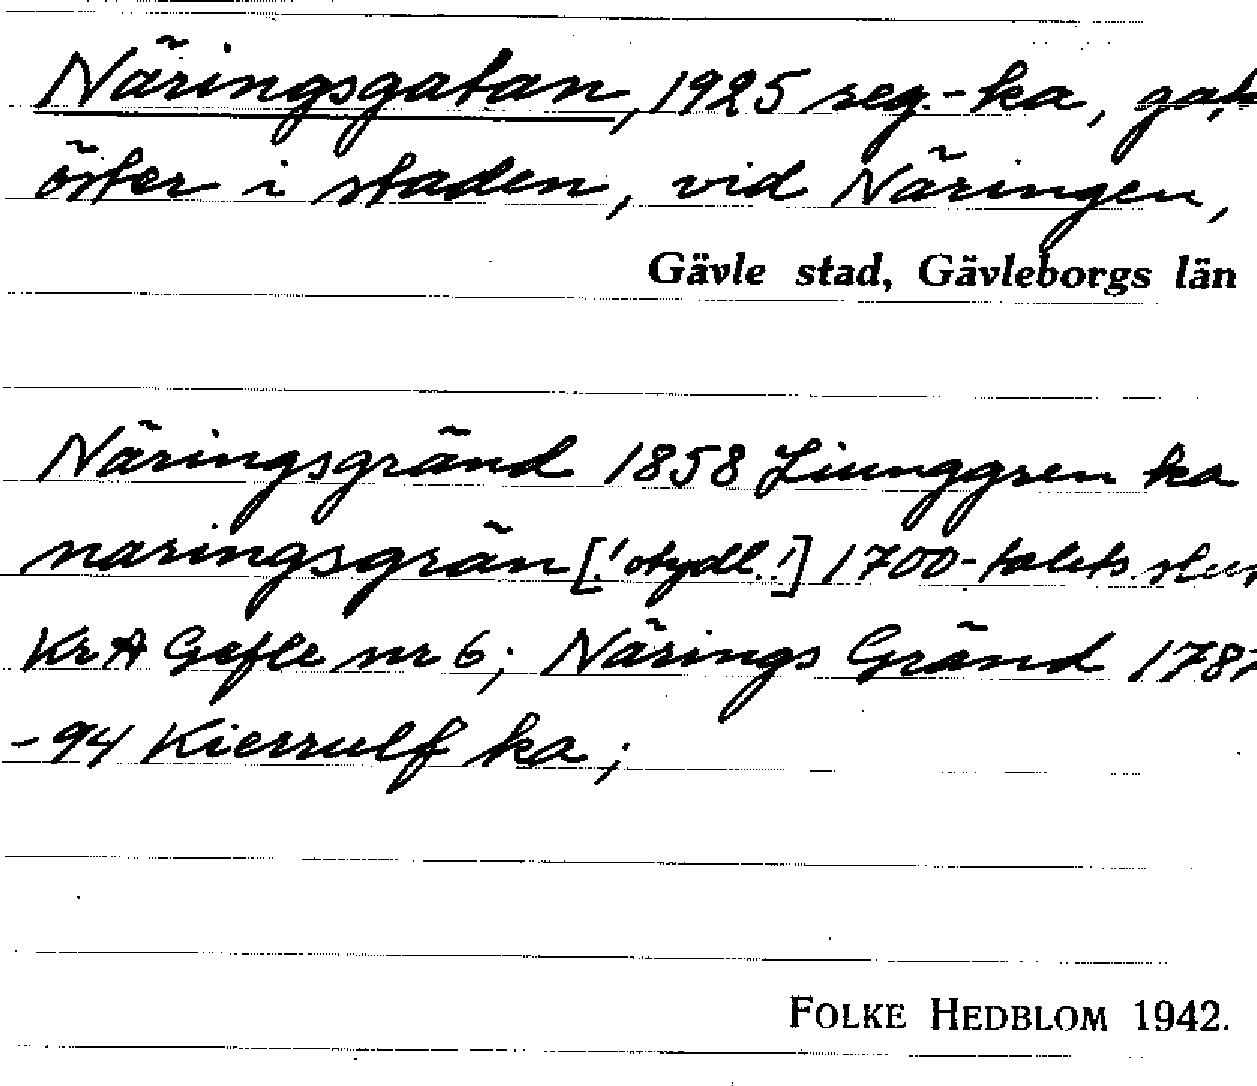 Näringsgatan, 1925 reg.-ka, gat
öster i staden, vid Näringen,
Gävle stad, Gävleborgs län
Näringsgränd 1858 Ljunggren ka
naringsgrän [! otydl.!] 1700-talets slut
KrA Gefle nr 6; Närings Gränd 1787
-94 Kierrulf ka;
FOLKE HEDBLOM 1942.